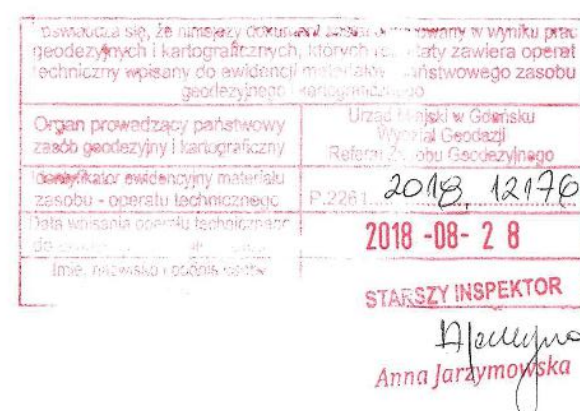 się, że niniejszy dokument w wyniku prac
geodezyjnych i kartograficznych, których zawiera operat
techniczny wpisany do ewidencji państwowego zasobu
geodezyjnego i kartograficznego
Organ prowadzący państwowy
zasób geodezyjny i kartograficzny
Urząd Miejski w Gdańsku
Wydział Geodezji
Referat Zasobu Geodezyjnego
Identyfikator ewidencyjny materiału
zasobu - operatu technicznego
P.2261. 2018. 12176
Data wpisania operatu technicznego
do
2018 -08- 2 8
Imię, nazwisko i podpis osoby
STARSZY INSPEKTOR
Anna Jarzymowska